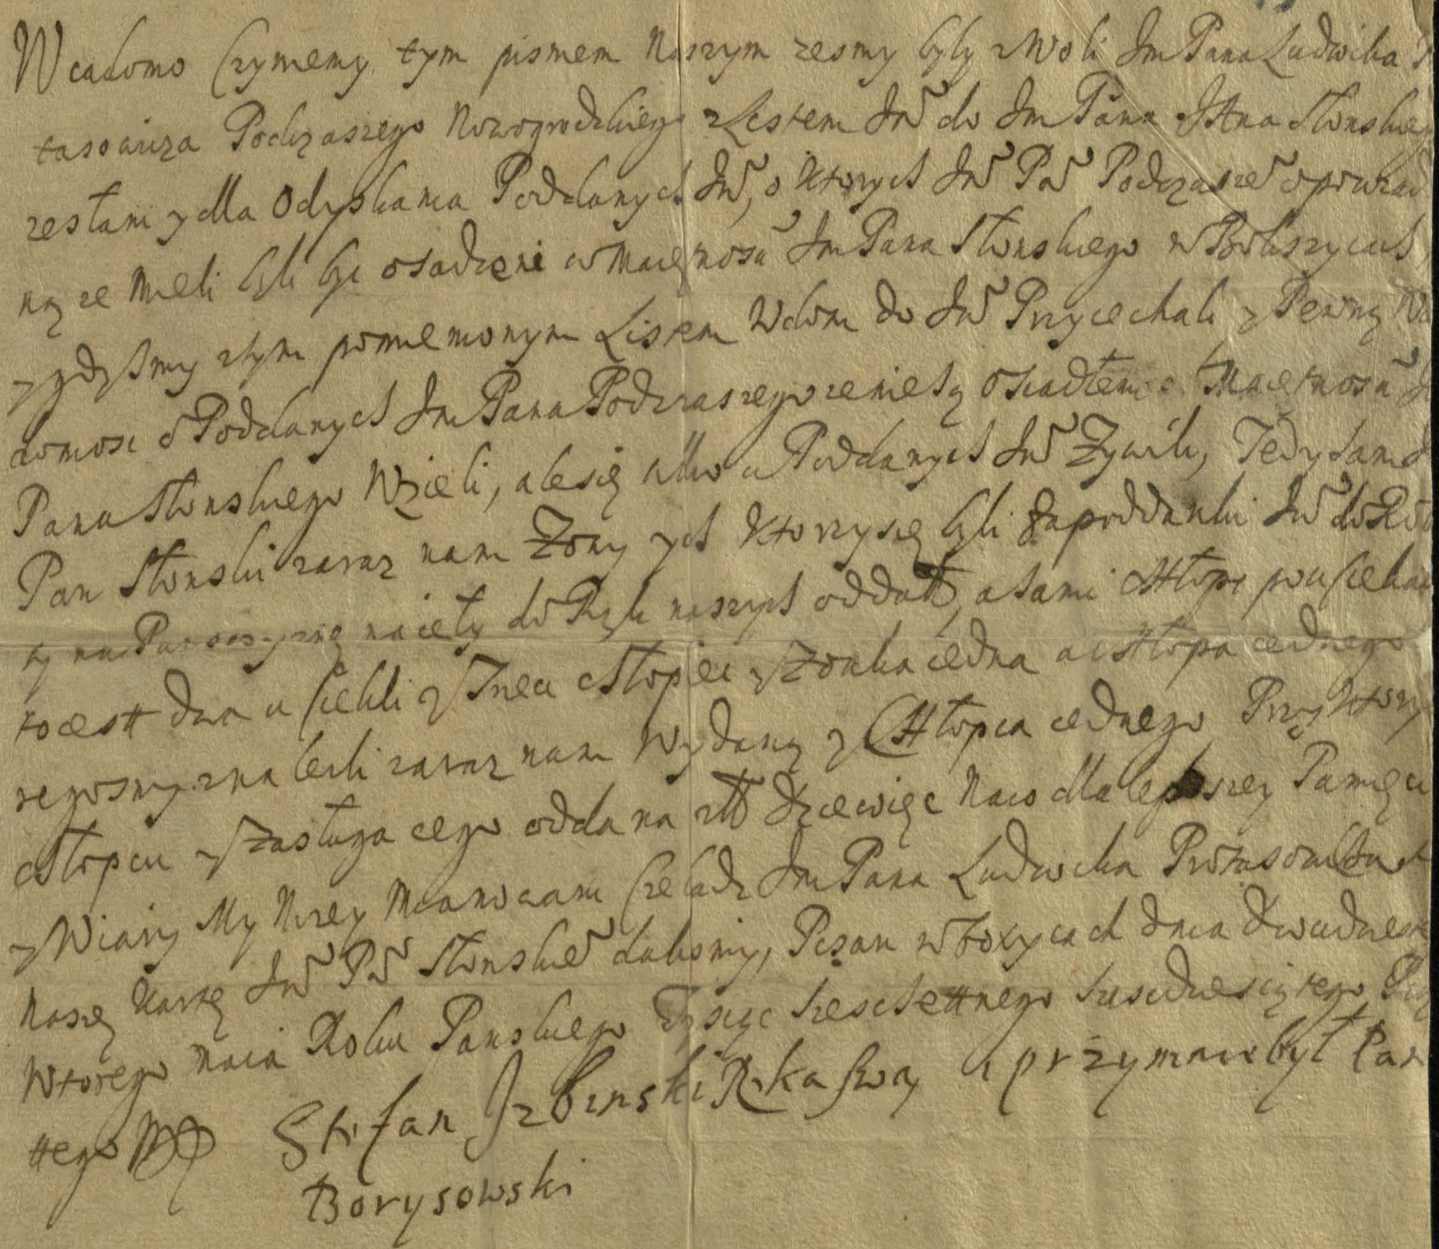 Wiadomo czyniemy tym pismem Naszym zesmy byli z Woli Jm Pana Ludwika
tasowicza Podczaszego Nowogrodzkiego z Listem Jw do Jm Pana Słonskiego
zesłani y dla Odyskania Poddanych Jw, o Ktorych Jw Pw Podczasze
ną ze Mieli byli byc osadzeni w Maiętnosci Jm Pana Słonskiego w
y gdysmy z tym pomienionym Listem W dom do Jw Przyiechali y Pewną
domosc o Poddanych Jm Pana Podczaszego ze nie są osiadłemi Maiętnosci
Pana Słonskiego Wzieli, ale się u Poddanych Jw Zywili, Tedy sam
Pan Słonski zaraz nam Zony ych Ktorzy się byli za poddanki Jw
ty na Panszczyznę naięty do Rąk naszych oddał, a sami chłopi pouciekali
to iest dwa uciekli y Trzeci chłopiec y Zonka iedna a chłopa iednego
regosmy znalezli zaraz nam Wydany y Chłopca iednego Przy Ktory
chłopcu y zasługa iego oddana zł dziewięc Naco dla lepszey Pamięci
y Wiary My Nizey Mianowani Czeladz Jm Pana Ludwika Protasowicza
Naszę Kartę Jw Pw Słonskie dalismy, Pisan w dnia dwudziest
Wtorego Maia Roku Panskiego Tysiąc szescsetnego szescdziesiątego
ttego
Stefan Ręka swą a przymnie był
Borysowski